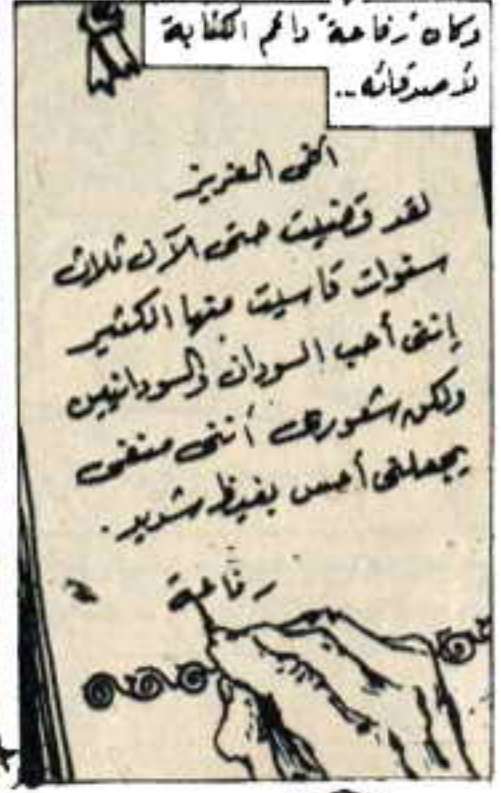 وكان "رفاعة" دائم الكتابة
لأصدقائه..
أخى العزيز
لقد قضيت حتى الآن ثلاث
سنوات قاسيت منها الكثير
إننى أحب السودان والسودانيين
ولكن شعورى أننى منفى
يجعلنى أحس بغيظ شديد.
رفاعة